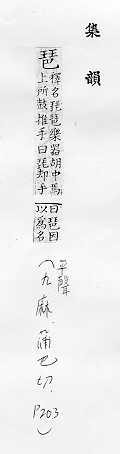 集韻
琶
釋名琵琶樂器胡中馬
上所鼓推手曰琵却手
曰琶因
以爲名
平聲
(九麻.蒲巴切.P203)